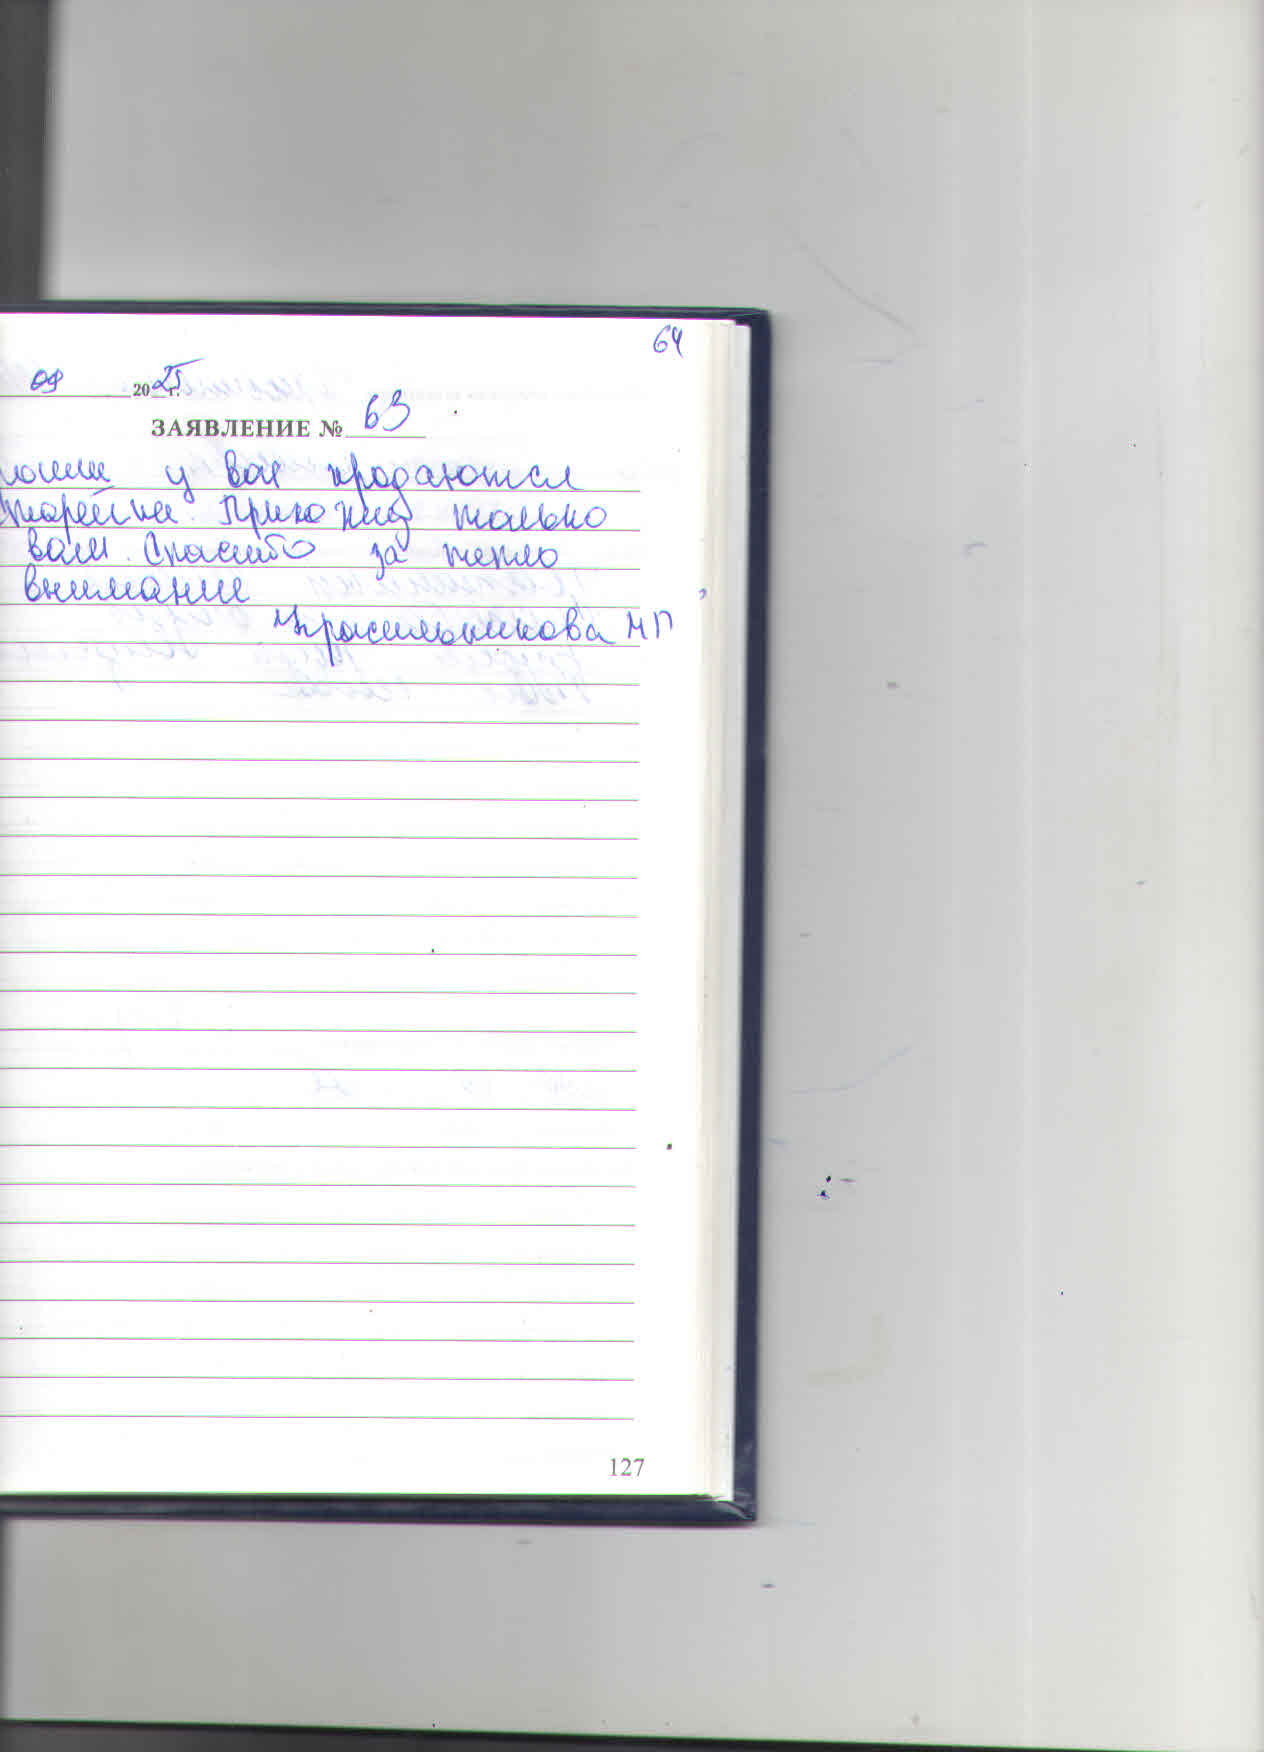 64
09 2025 г.
ЗАЯВЛЕНИЕ № 63
у вас продаются
Прихожу только
вам. Спасибо за тепло
внимание
Красильникова НП
127